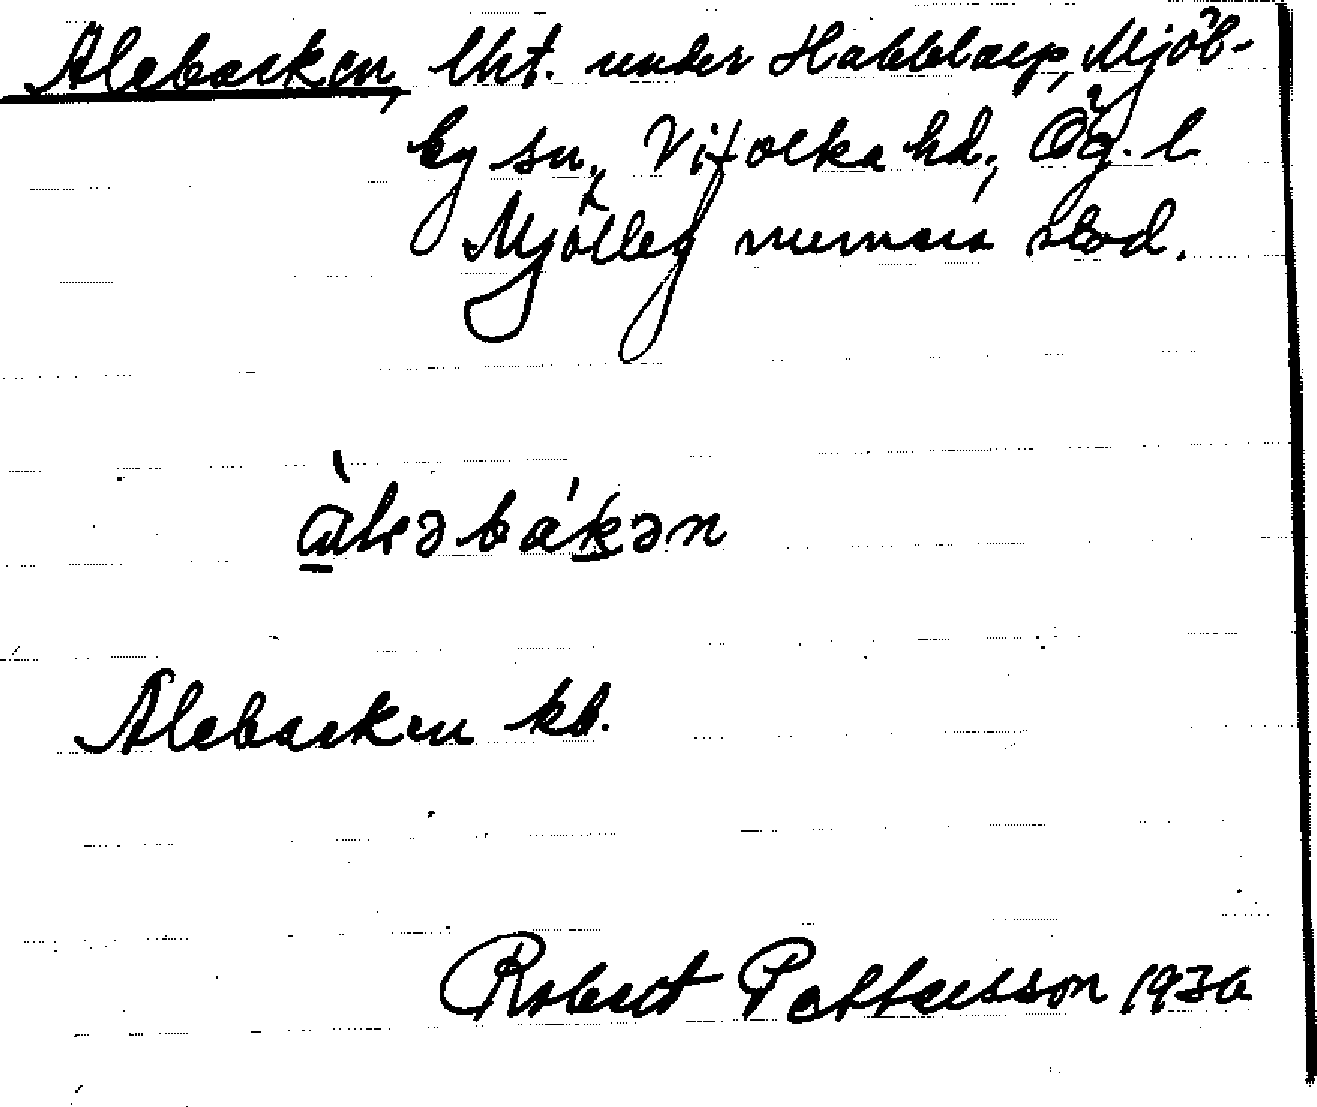 Alebacken, lht. under Habblarp, Mjöb-
by sn, Vifolka hd, Ög. l
Mjölby numera stad.
àlɘbákən
Alebacken kb.
Robert Pettersson 1936